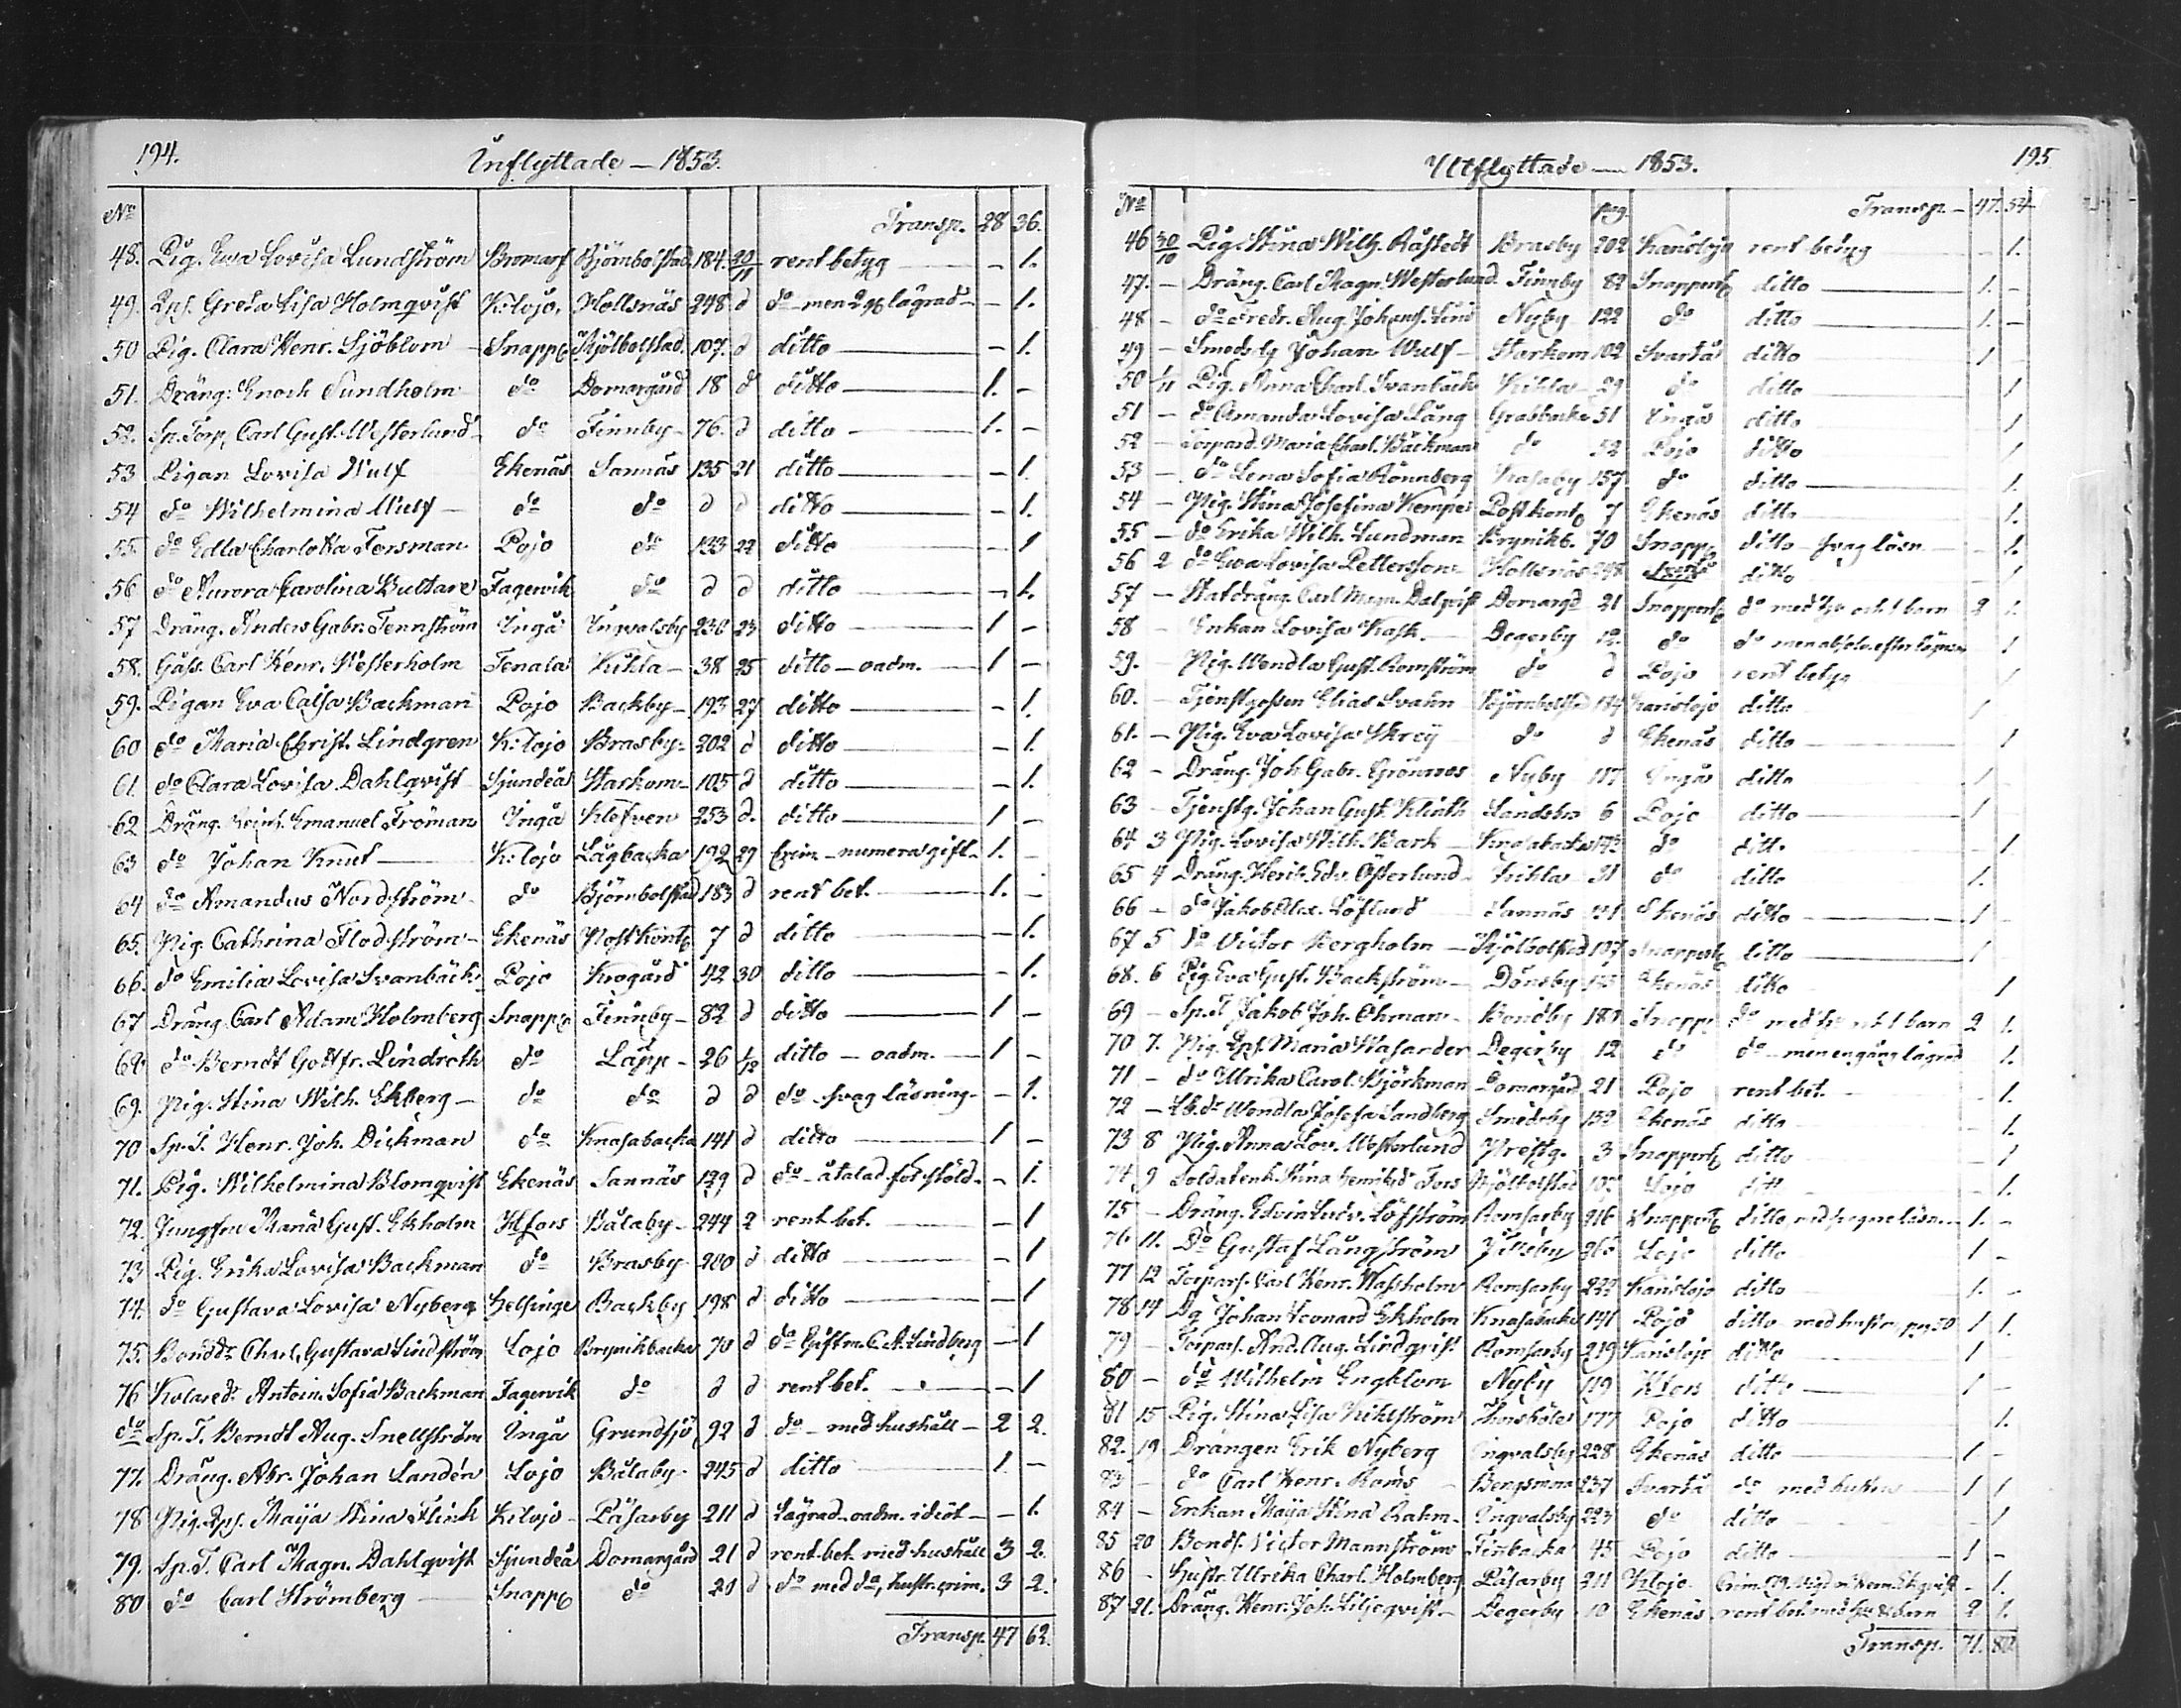 194.
Inflyttade — 1853.
No Transp. 28 36.
48. Pig. Ewa Lovisa Lundström Bromarf Björnbolstad 184. 20/11 rent betyg — – 1.
49. Pgs. Greta Lisa Holmqvist K:lojo, Hollsnäs 248 d do men lägrad – – 1.
50 Pig. Clara Henr. Sjöblom Snapp Kjölbolstad 107. d ditto — – 1.
51. Dräng. Enoch Sundholm do Domargård 18 d ditto — 1. –
52. Sp. Torp. Carl Gust. Westerlund do Finnby 76. d ditto — 1. –
53 Pigan Lovisa Wulf Ekenäs Sannäs 135 21 ditto — – 1.
54 do Wilhelmina Wulf do do d d ditto — – 1.
55. do Edla Charlotta Forsman Pojo do 133 22 ditto — – 1
56 do Aurora Carolina Bultare Fagervik do d d ditto — – 1.
57 Dräng. Anders Gabr. Tennström Ingå Ingvalsby 230 23 ditto — 1 –
58. Gåss. Carl Henr. Westerholm Tenala Kihla 38 25 ditto – oadm. — 1 –
59. Pigan Eva Cajsa Backman Pojo Backby 193 27 ditto — – 1.
60 do Maria Christ. Lindgren K:lojo Brasby 202 d ditto — – 1.
61. do Clara Lovisa Dahlqvist Sjundeå Starkom 105 d ditto — – 1.
62 Dräng. Reinh. Emanuel Fröman Ingå Klefven 253 d. ditto — 1 –
63 do Johan Knut — K:lojo Lågbacka 192 29 Crim – numera gift 1. –
64 do Amandus Nordström do Björnbolstad 183 d rent bet. — 1. –
65. Pig. Cathrina Flodström Ekenäs Postkont 7 d ditto — – 1.
66. do Emilia Lovisa Svanbäck Pojo Krogård 42 30 ditto — – 1.
67 Dräng. Carl Adam Holmberg Snapp Finnby 82 d ditto — 1 –
68 do Berndt Gottfr. Lindroth do Läpp 26 1/12 ditto – oadm. — 1 –
69. Pig. Stina Wilh. Ekberg do do d d do svag läsning – 1.
70 Sp. T. Henr. Joh. Dickman do Knasabacka 141 d ditto — 1 –
71. Pig. Wilhelmina Blomqvist Ekenäs Sannäs 129 d do åtalad för stöld – 1.
72. Jungfru Maria Gust. Ekholm Hfors Bålaby 244 2 rent bet. — – 1
73 Pig. Erika Lovisa Backman do Brasby 200 d ditto — – 1
74. do Gustava Lovisa Nyberg Helsinge Backby 198 d ditto — – 1
75. Bondd: Charl. Gustava Lindström Lojo Brynikbacka 70 d do Gift m. C. A. Lindberg – 1
76 Kolared: Antoin. Sofia Backman Fagervik do d d rent bet. — – 1
do Sp. T. Berndt Aug. Snellström Ingå Grundsjö 92 d do – med hushåll – 2 2.
77. Dräng. Abr. Johan Landén Lojo Bålaby 245 d ditto — 1. –
78 Pig. Maija Stina Flink K:lojo Påsarby 211 d Lägrad – oadm. idiot – – 1.
79. Sp. T. Carl Magn. Dahlqvist Sjundeå Domargård 21 d rent bet. med hushåll 3 2.
80 do Carl Strömberg — Snapp do 20 d do med do, hustr. crim. 3 2.
Transp. 47 62.
195
Utflyttade — 1853.
No pag. Transp. – 47. 54
46 30/10 Pig. Stina Wilh. Råstedt Brasby 202 Karislojo rent betyg — – 1.
47. – Dräng. Carl Magn. Westerlund Finnby 82 Snappert ditto — 1. –
48 – do Fredr. Aug. Johans. Lind Nyby 122 do ditto — 1. –
49 – Smedsdg Johan Wulf Starkom 102 Svartå ditto — 1
50 1/11 Pig. Anna Charl. Svanbäck Kihla 29 do ditto — 1
51 – do Amanda Lovisa Lång Grabbacka 51 Ingå ditto — 1
52 – Torpard. Maria Charl. Bäckman do 52 Pojo ditto 1
53 – do Lena Sofia Rönnberg 157 do ditto — 1.
54 – Pig. Stina Josefina Kempe Postkont 7 Ekenäs ditto — 1.
55 – do Erika Wilh. Lundman Brynikb. 70 Snapp ditto – svag läsn. – 1.
56 2 do Ewa Lovisa Pettersson Hollsnäs 248 ditto 1
57 – Statdräng. Carl Magn. Dalqvist Domargd 21 Snappert do med hu och 1 barn 2 1.
58 – Enkan Lovisa Kask Degerby 12. do do men absolv. efter lägersm. 1
59. – Pig. Wendla Gust. Romström do d Pojo rent betyg 1
60. – Tjenstgossen Elias Svahn Björnbolstad 184 Karislojo ditto 1
61. – Pig. Eva Lovisa Skrey do d Ekenäs ditto — 1
62 – Dräng. Joh Gabr. Grönroos Nyby 117 Ingå ditto 1
63 – Tjenstg. Johan Gust. Klinth Landsbro 6 Pojo ditto — 1
64 3 Pig. Lovisa Wilh. Bark Knasabacka 143 do ditto 1.
65 4 Dräng. Henr. Edv. Österlund Kihla 31 do ditto 1.
66 – do Jakob Alex. Löflund Sannäs 131 Ekenäs ditto — 1 –
67 5 do Victor Bergholm Kjölbolstad 107 Snappert ditto — 1
68. 6 Pig. Eva Gust. Backström Dönsby 125 Ekenäs ditto 1
69 – Sp. T. Jakob Joh. Öhman Bondby 187 Snapp do med hu och 1 barn 2 1.
70 7. Pig. Maria Wasander Degerby 12 do do – men en gång lägrad 1.
71 – do Ulrika Carol. Björkman Domargård 21 Pojo rent bet. – 1.
72 – Wendla Josefa Sandberg Smedsby 152 Ekenäs ditto – 1.
73 8 Pig. Anna Lov. Westerlund Prestg. 3 Snappert ditto 1
74 9 Soldatenk. Stina Henriksd: Fors Kjölbolstad 107 Lojo ditt – 1.
75 – Dräng. Edvin Ludv. Löfström Romsarby 216 Snappert ditto, läsn. 1. –
76 11. Do Gustaf Långström Jilleby 265 Lojo ditto 1 –
77 12 Torpars. Carl Henr. Wastholm Romsarby 222 Karislojo ditto — 1. –
78 14 Dg Johan Leonard Ekholm Knasabacka 141 Pojo ditto – med hustru, pag. 50 1 1.
79 – Torpars. And. Aug. Lindqvist Romsarby 219 Karislojo ditto — 1
80 – do Wilhelm Engblom Nyby 119 Hfors ditto — 1 –
81 15 Pig. Stina Lisa Kihlström Thorsböle 177 Pojo ditto — 1.
82. 19 Drängen Erik Nyberg Ingvalsby 228 Ekenäs ditto — 1 –
83 – do Carl Henr. Roms Bengsman 237 Svartå do med hustru — 1 1
84 – Enkan Maija Stina Rahm Ingvalsby 223 do ditto – – 1
85 20 Bonds. Victor Mannström Finbacka 45 Pojo ditto — 1 –
86 – Hustr. Ulrika Charl. Holmberg Påsarby 211 K:lojo Crim. – 1.
87 21. Dräng. Henr. Joh. Liljeqvist Degerby 10 Ekenäs rent bet. med hu & barn 2 1.
Transp. 71. 80